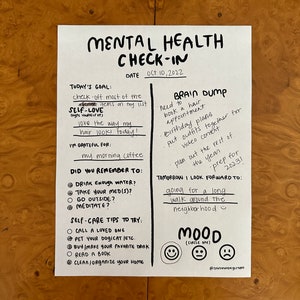 MENTAL HEALTH
CHECK-IN
DATE OCT 10, 2022
TODAY'S GOAL:
check off most of the
items on my list
SELF-LOVE
love the way my
hair looks today!
I'M GRATEFUL FOR:
my morning coffee
DID YOU REMEMBER TO:
DRINK ENOUGH WATER?
TAKE YOUR MED(S)?
GO OUTSIDE?
MEDITATE?
SELF-CARE TIPS TO TRY:
CALL A LOVED ONE
PET YOUR DOG/CAT ETC.
BUY/MAKE YOUR FAVORITE DRINK
READ A BOOK
CLEAN/ORGANIZE YOUR HOME
BRAIN DUMP
need to
book a hair
appointment
birthday plans
put outfits together for
video content
plan out the rest of
the year
prep for
2023!
TOMORROW I LOOK FORWARD TO:
going for a long
walk around the
neighborhood
MOOD
(CIRCLE ONE)